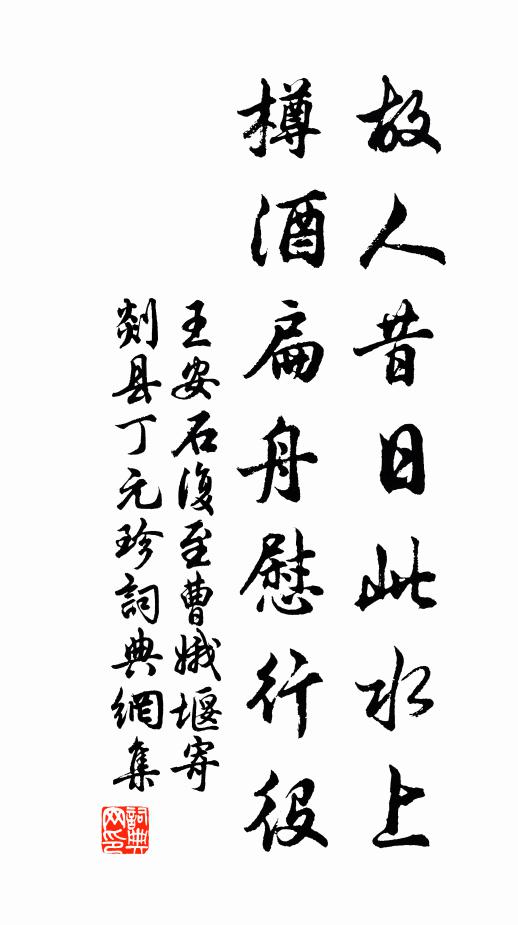 故人昔日此水上
樽酒扁舟慰行役
王安石復至曹娥堰寄
剡县丁元珍詞典網集
詞典網印